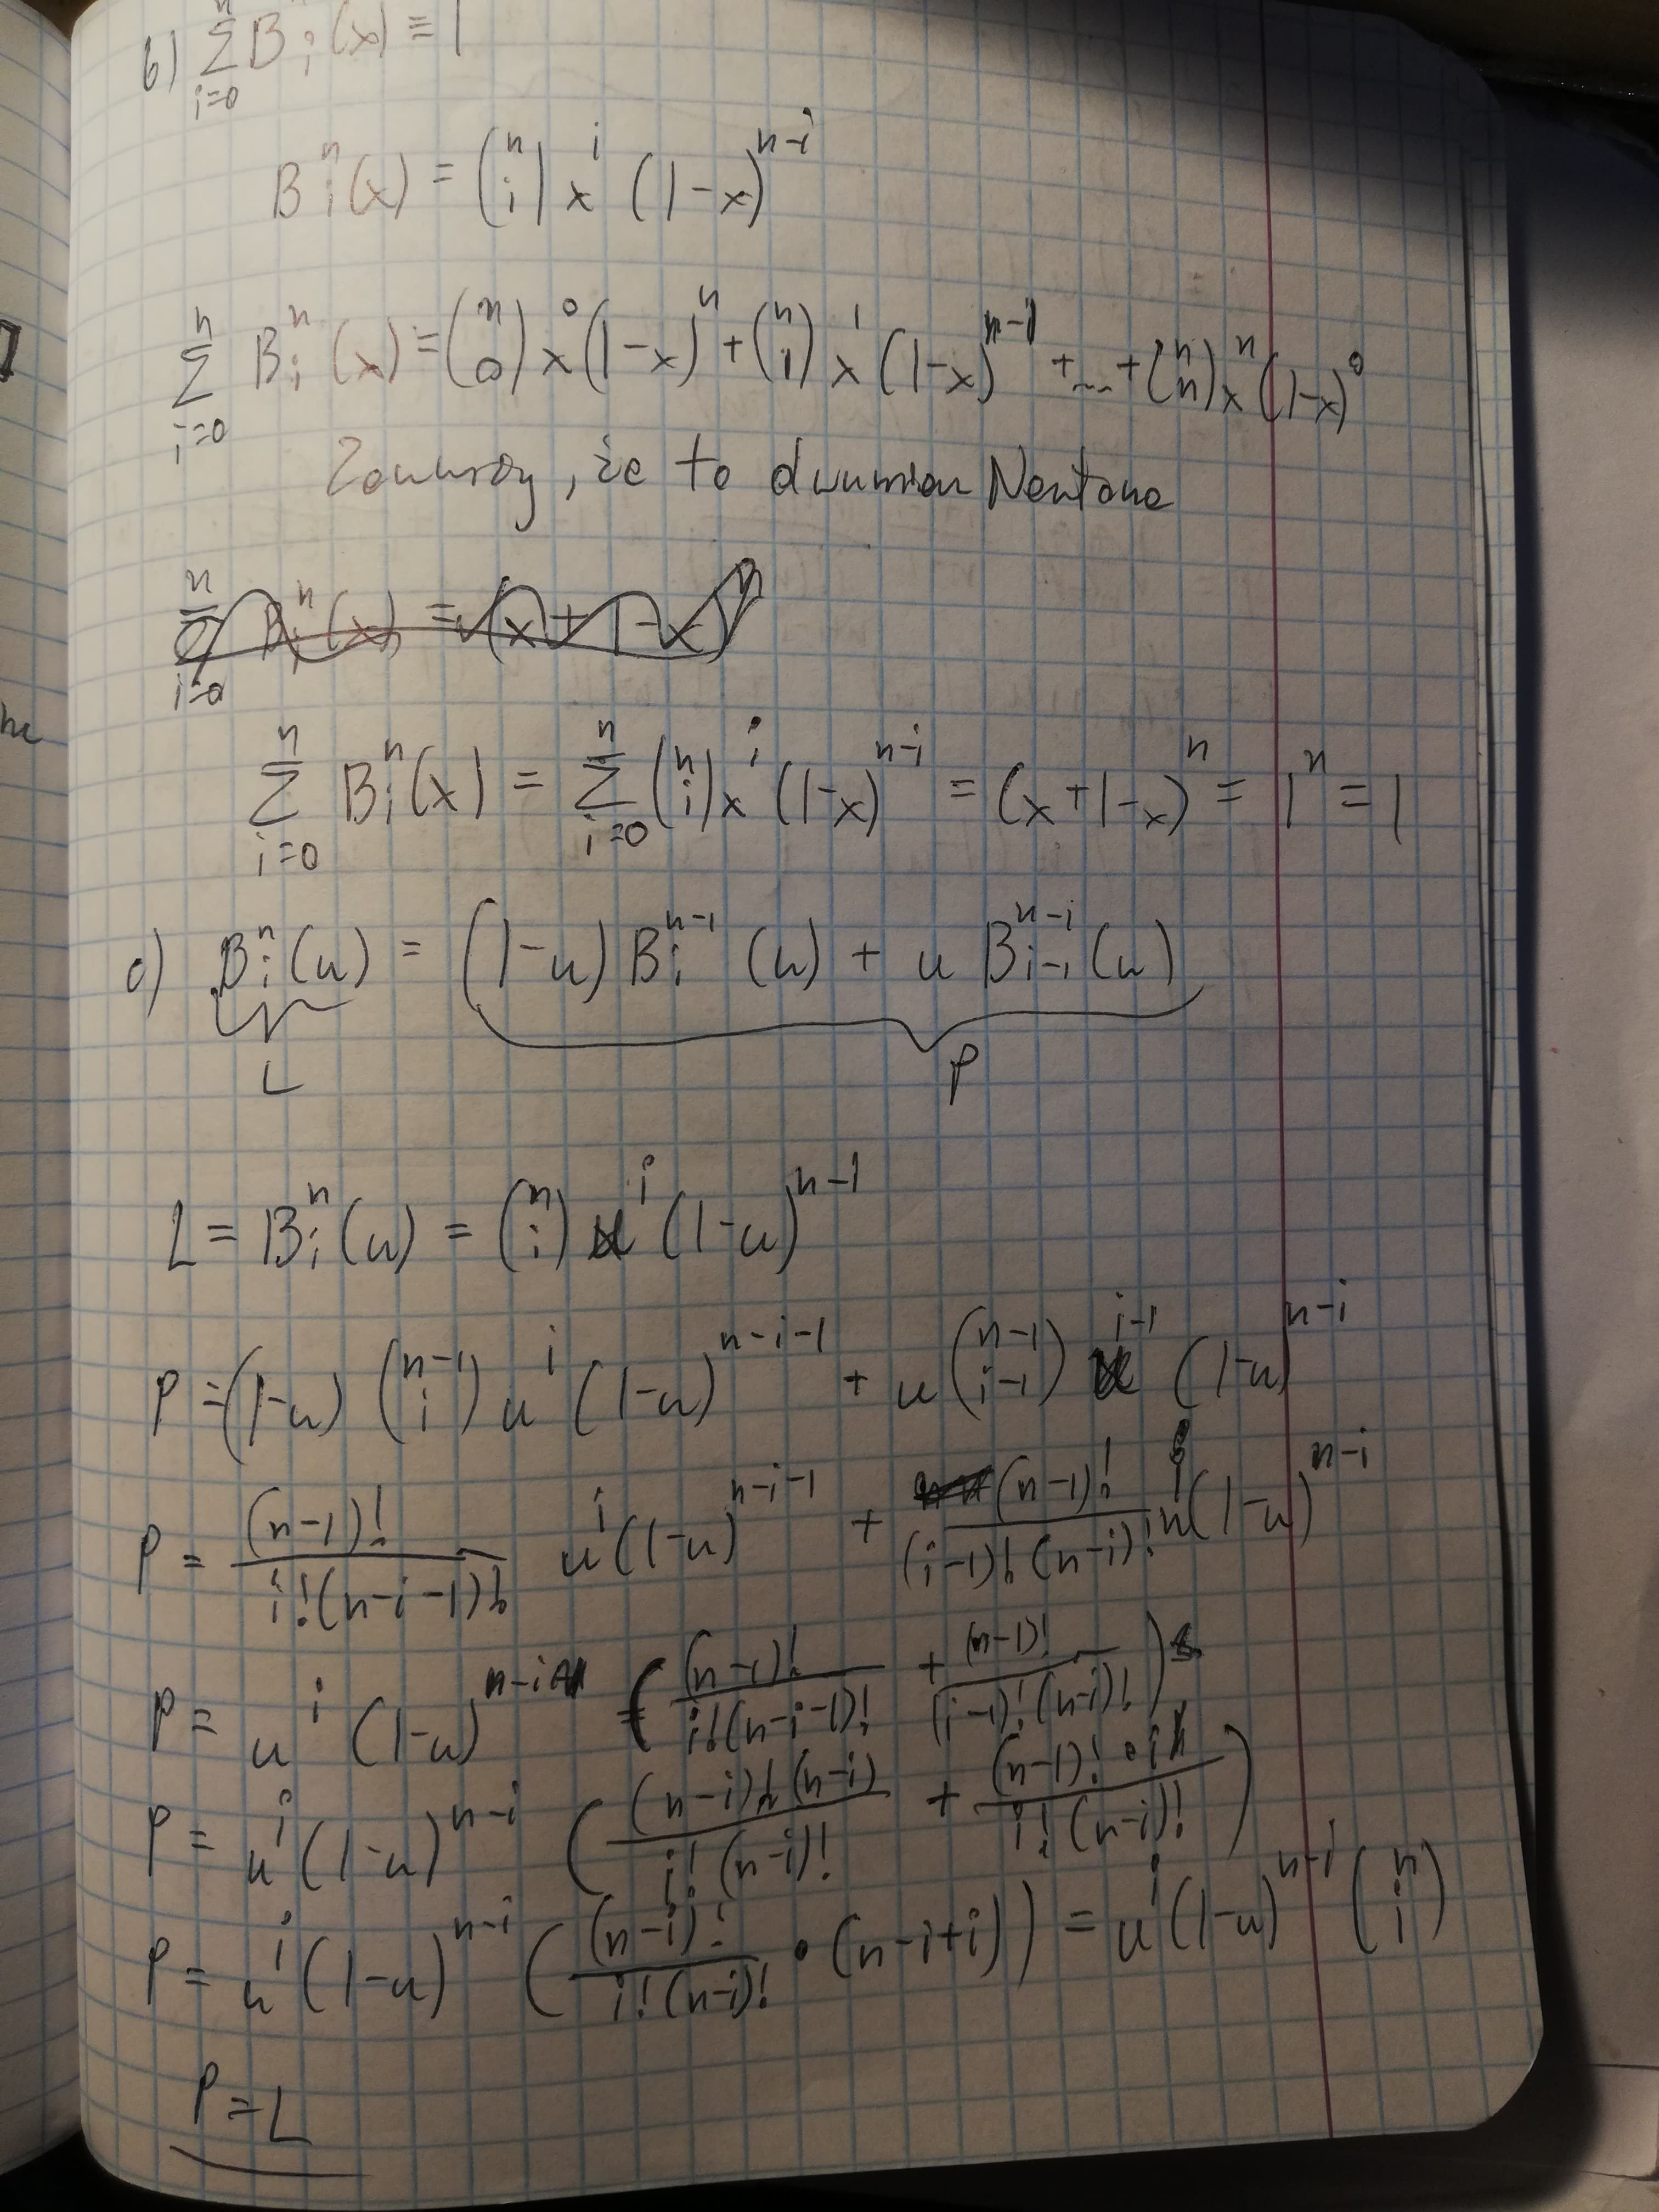 b) \sum_{i=0}^{n} B_i^n(x) = 1
B_i^n(x) = \binom{n}{i} x^i (1-x)^{n-i}
\sum_{i=0}^{n} B_i^n(x) = \binom{n}{0} x^0 (1-x)^n + \binom{n}{1} x^1 (1-x)^{n-1} + ... + \binom{n}{n} x^n (1-x)^0
Zauważmy, że to dwumian Newtona
\sum_{i=0}^{n} B_i^n(x) = \sum_{i=0}^{n} \binom{n}{i} x^i (1-x)^{n-i} = (x+1-x)^n = 1^n = 1
c) B_i^n(u) = (1-u) B_i^{n-1}(u) + u B_{i-1}^{n-1}(u)
L P
L = B_i^n(u) = \binom{n}{i} u^i (1-u)^{n-1}
P = (1-u) \binom{n-1}{i} u^i (1-u)^{n-i-1} + u \binom{n-1}{i-1} u^{i-1} (1-u)^{n-i}
P = \frac{(n-1)!}{i!(n-i-1)!} u^i (1-u)^{n-i-1} + \frac{(n-1)!}{(i-1)!(n-i)!} u^i (1-u)^{n-i}
P = u^i (1-u)^{n-i} ( \frac{(n-1)!}{i!(n-i-1)!} + \frac{(n-1)!}{(i-1)!(n-i)!} )
P = u^i (1-u)^{n-i} ( \frac{(n-i)!(n-i)}{i!(n-i)!} + \frac{(n-1)! \cdot i}{i!(n-i)!} )
P = u^i (1-u)^{n-i} ( \frac{(n-i)!}{i!(n-i)!} \cdot (n-i+i) ) = u^i (1-u)^{n-i} \binom{n}{i}
P = L